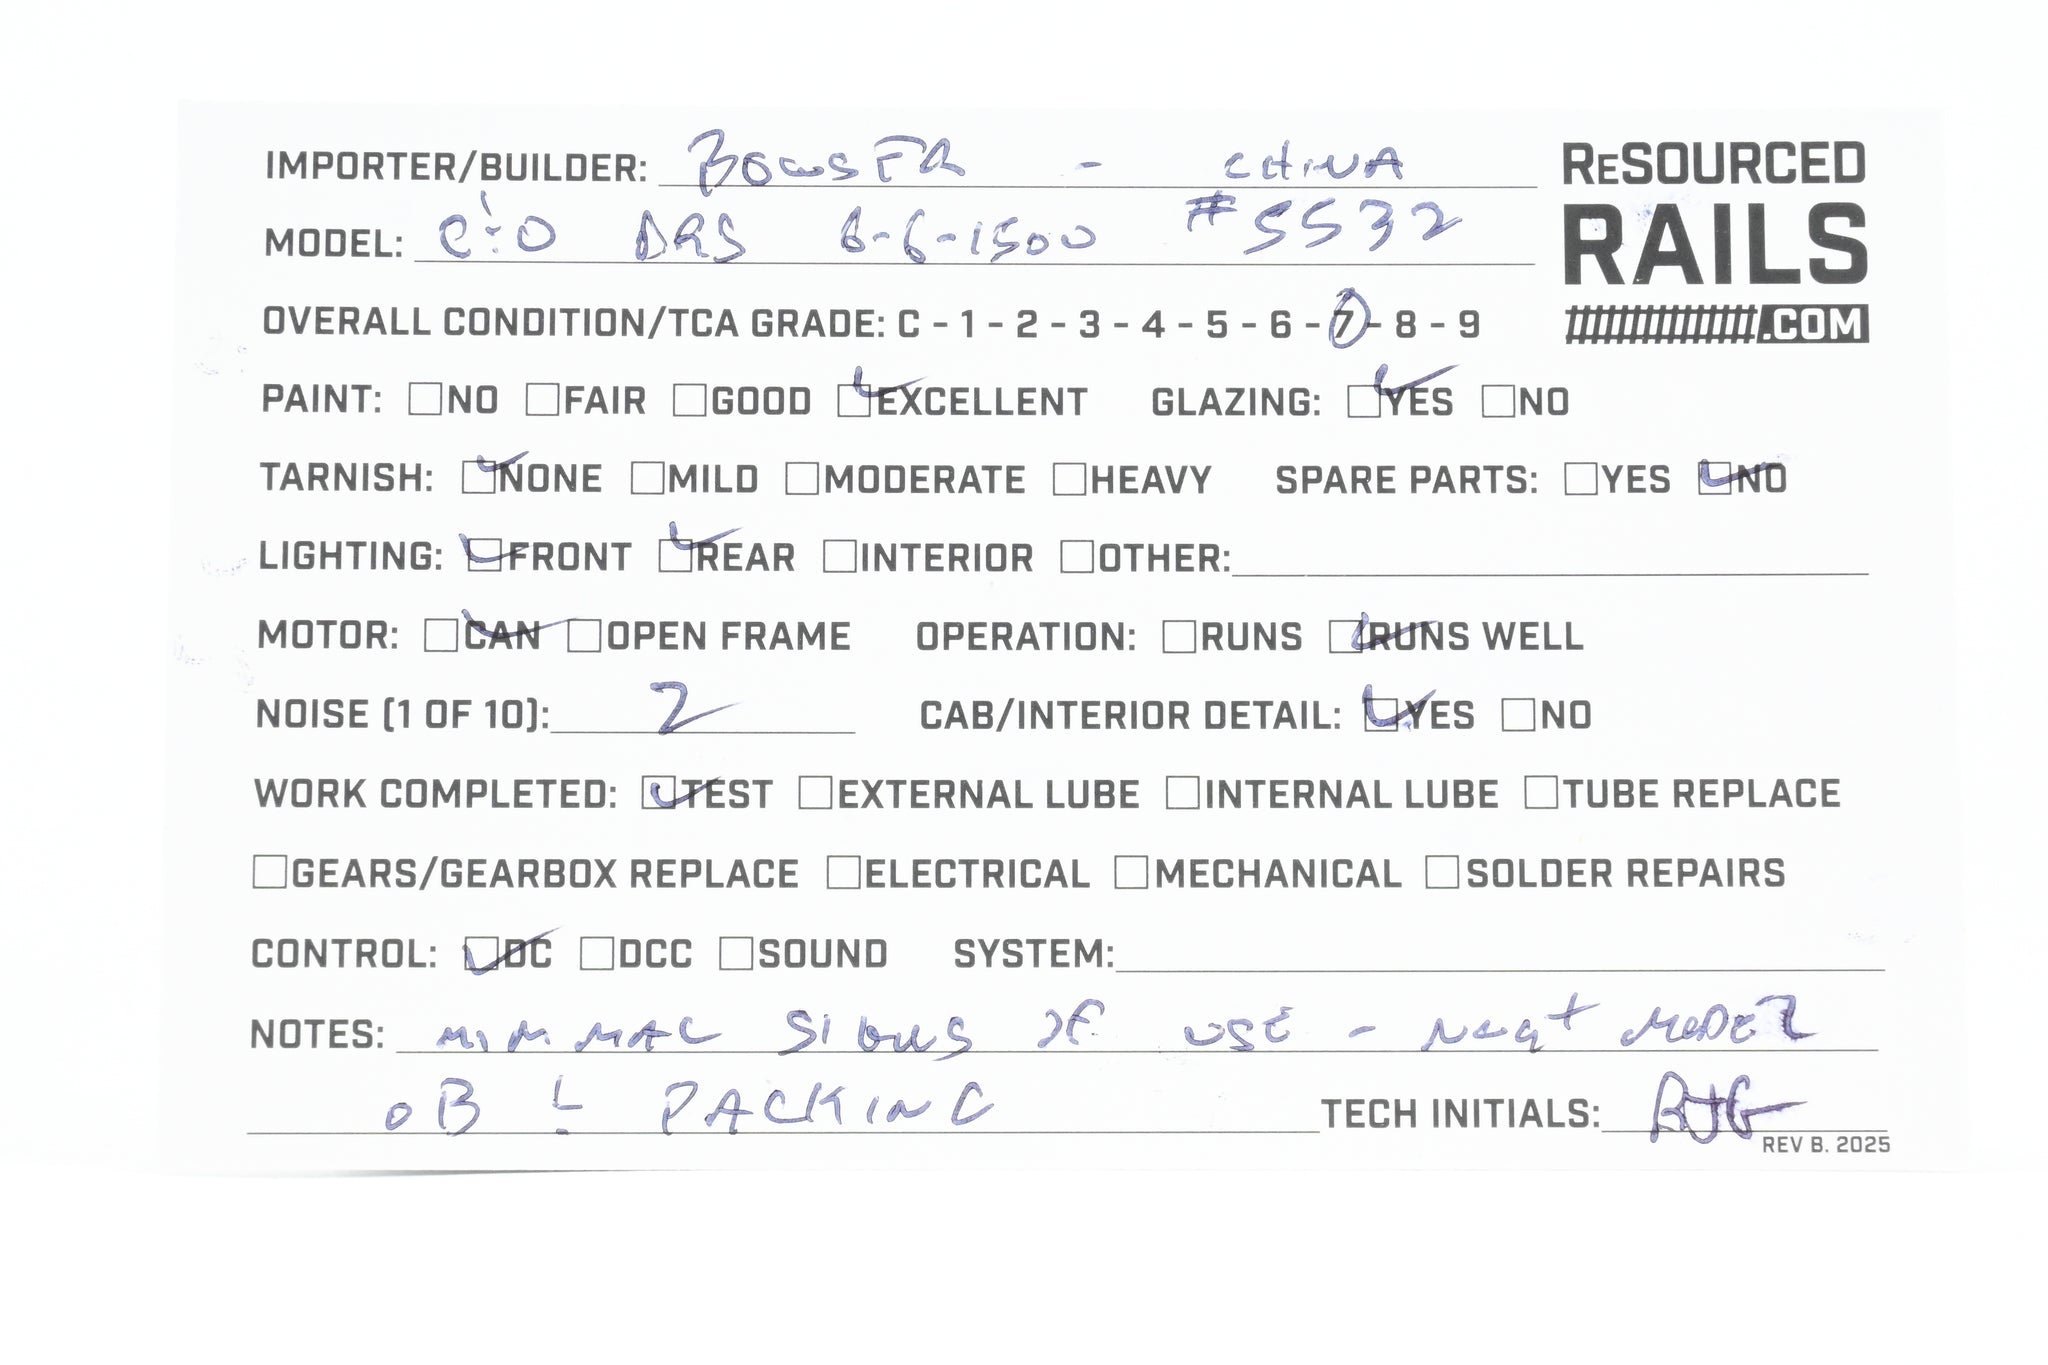 IMPORTER/BUILDER: BOWSER - CHINA
RESOURCED
RAILS
.COM
MODEL: C&O DRS 6-6-1500 #5532
OVERALL CONDITION/TCA GRADE: C - 1 - 2 - 3 - 4 - 5 - 6 - 7 - 8 - 9
PAINT: ☐NO ☐FAIR ☐GOOD ☑EXCELLENT GLAZING: ☑YES ☐NO
TARNISH: ☑NONE ☐MILD ☐MODERATE ☐HEAVY SPARE PARTS: ☐YES ☑NO
LIGHTING: ☑FRONT ☑REAR ☐INTERIOR ☐OTHER:
MOTOR: ☑CAN ☐OPEN FRAME OPERATION: ☐RUNS ☑RUNS WELL
NOISE (1 OF 10): 2 CAB/INTERIOR DETAIL: ☑YES ☐NO
WORK COMPLETED: ☑TEST ☐EXTERNAL LUBE ☐INTERNAL LUBE ☐TUBE REPLACE
☐GEARS/GEARBOX REPLACE ☐ELECTRICAL ☐MECHANICAL ☐SOLDER REPAIRS
CONTROL: ☑DC ☐DCC ☐SOUND SYSTEM:
NOTES: MINIMAL SIGNS OF USE - MODEL
OB & PACKING TECH INITIALS: RJG
REV B. 2025